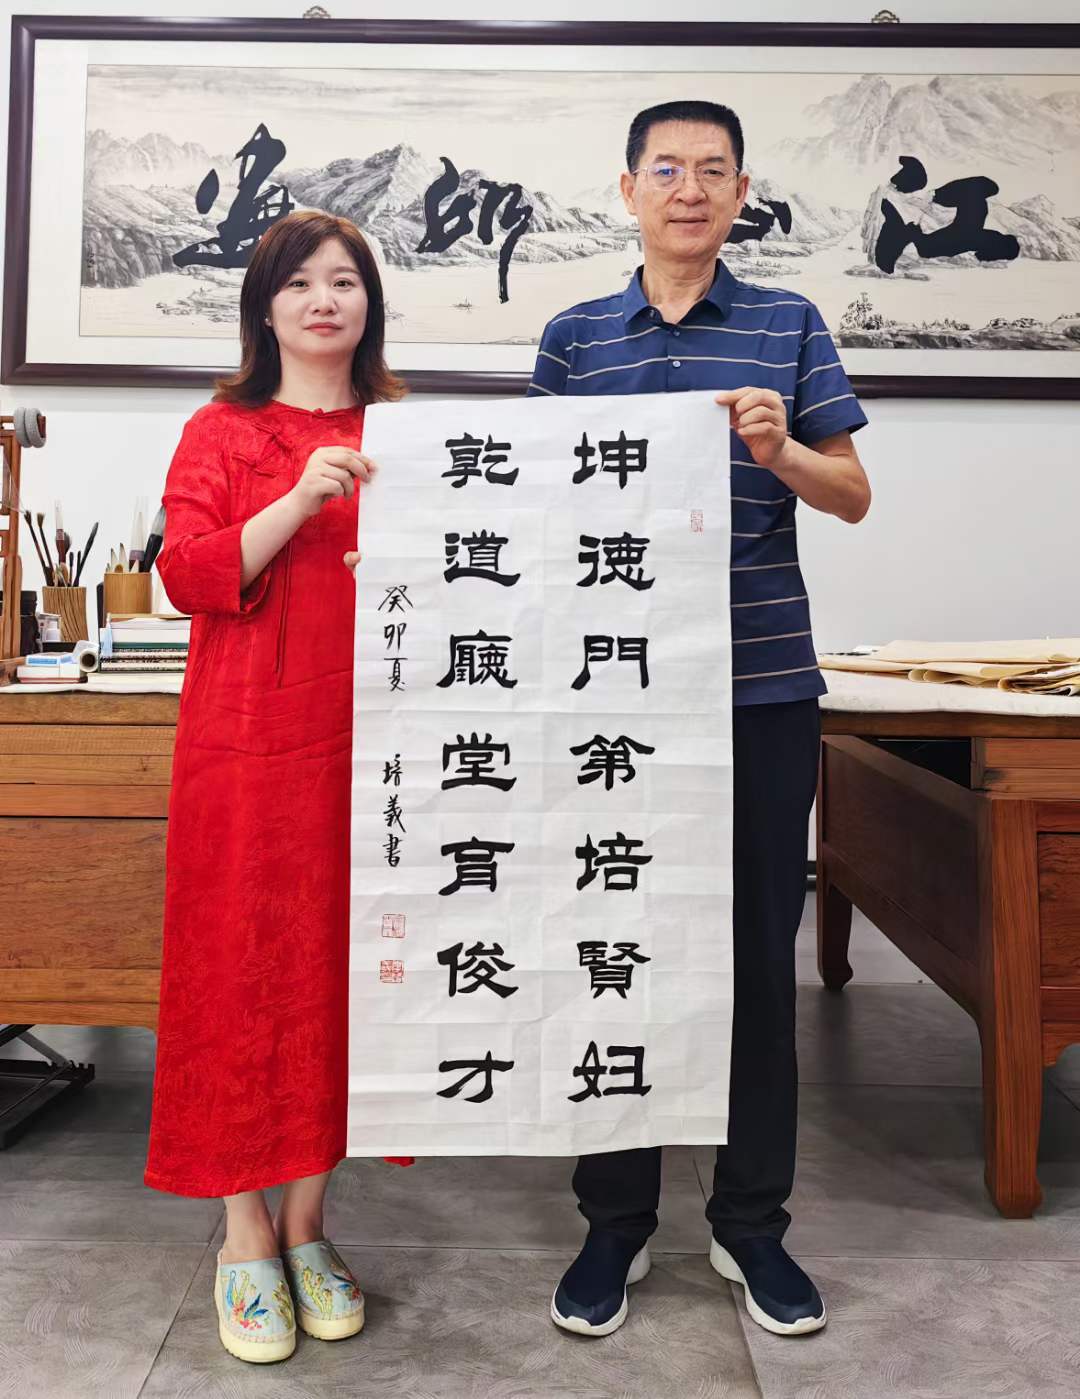 坤德門第培賢妇
乾道廳堂育俊才
癸卯夏 培義書
江山如畫